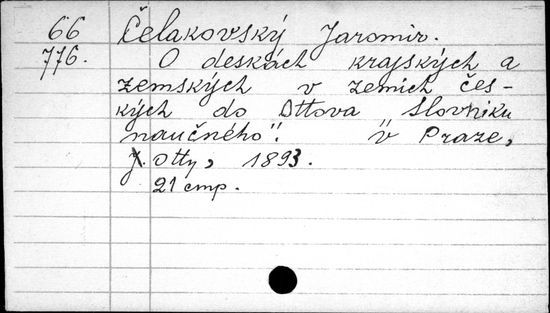 66 Čelakovský Jaromir.
776. O deskách krajských a
zemských v zemích čes-
kých do Ottova Slovniku
naučného". V Praze,
J. Otty, 1893.
21 cmp.